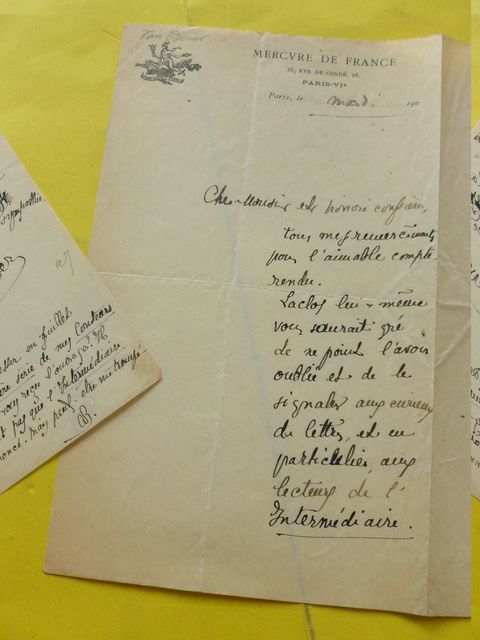 Van Bever
MERCVRE DE FRANCE
26, RVE DE CONDÉ, 26
PARIS-VIe
Paris, le mardi 190
Cher Monsieur et honoré confrère,
tous mes remerciements
pour l'aimable compte
rendu.
Laclos lui-même
vous saurait gré
de ne point l'avoir
oublié et de le
signaler aux curieux
de lettres, et en
particulier, aux
lecteurs de l'
Intermédiaire.
en juillet
série de mes Conteurs
vous reçu
pas que l'Intermédiaire
peut-être me trompé